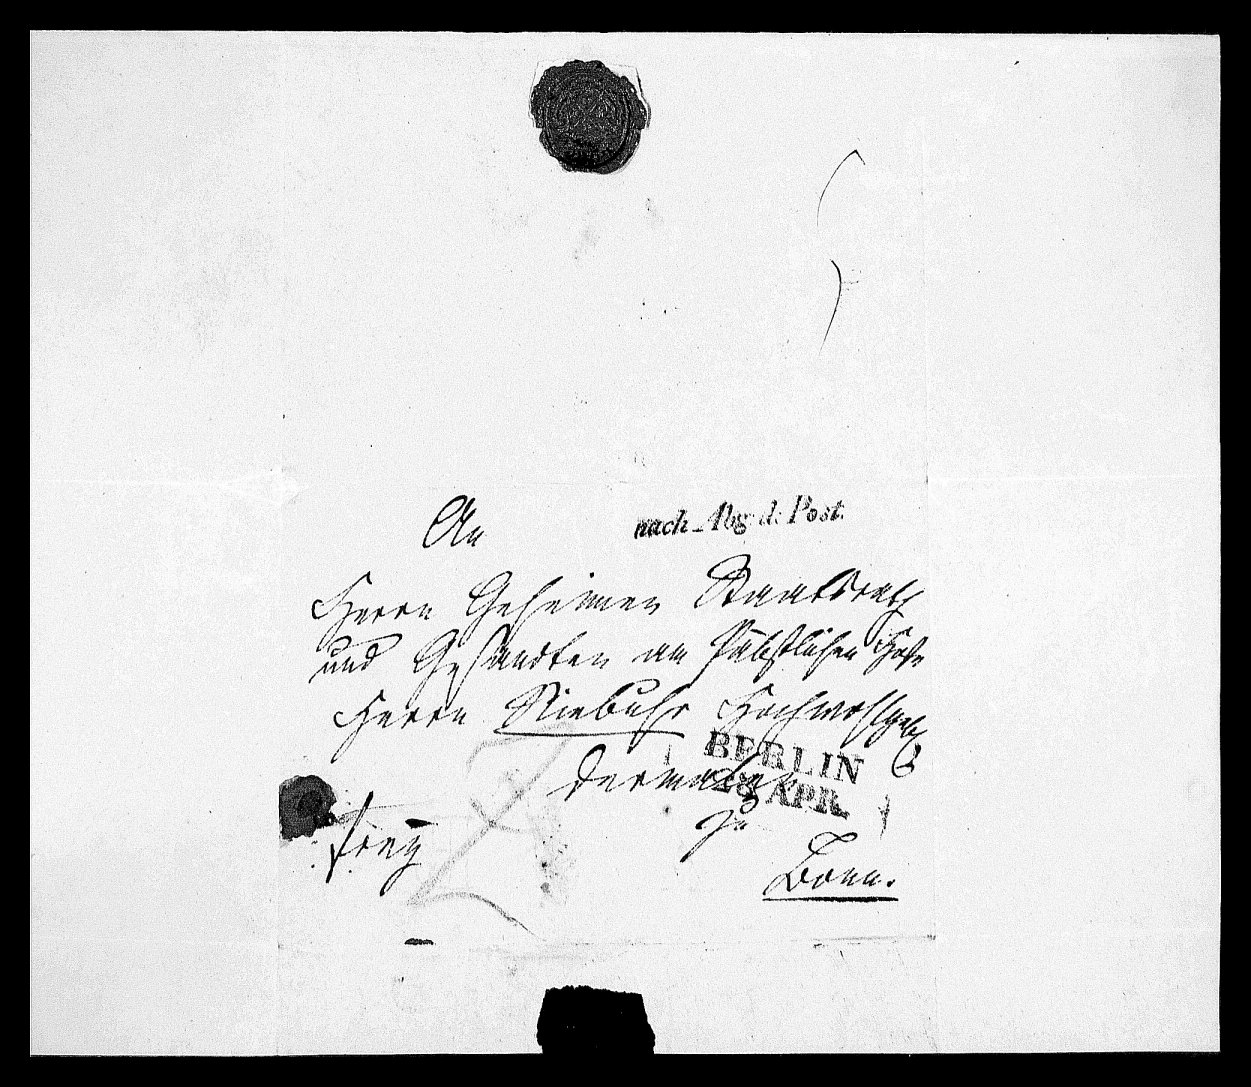 An
nach Abg: d: Post.
Herrn Geheimen Staatsrath
und Gesandten am Päbstlichen Hofe
Herrn Niebuhr Hochwohlgeb
BERLIN
dermalen
28 APR.
zu
frey
Bonn.